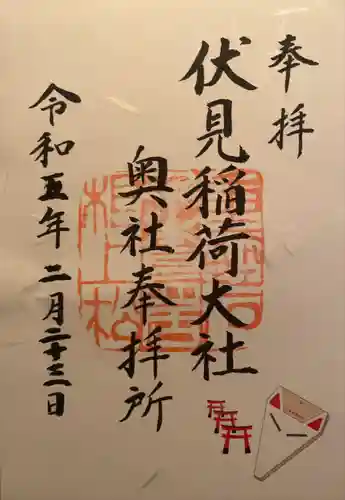 奉拝
伏見稲荷大社
奥社奉拝所
令和五年二月二十三日